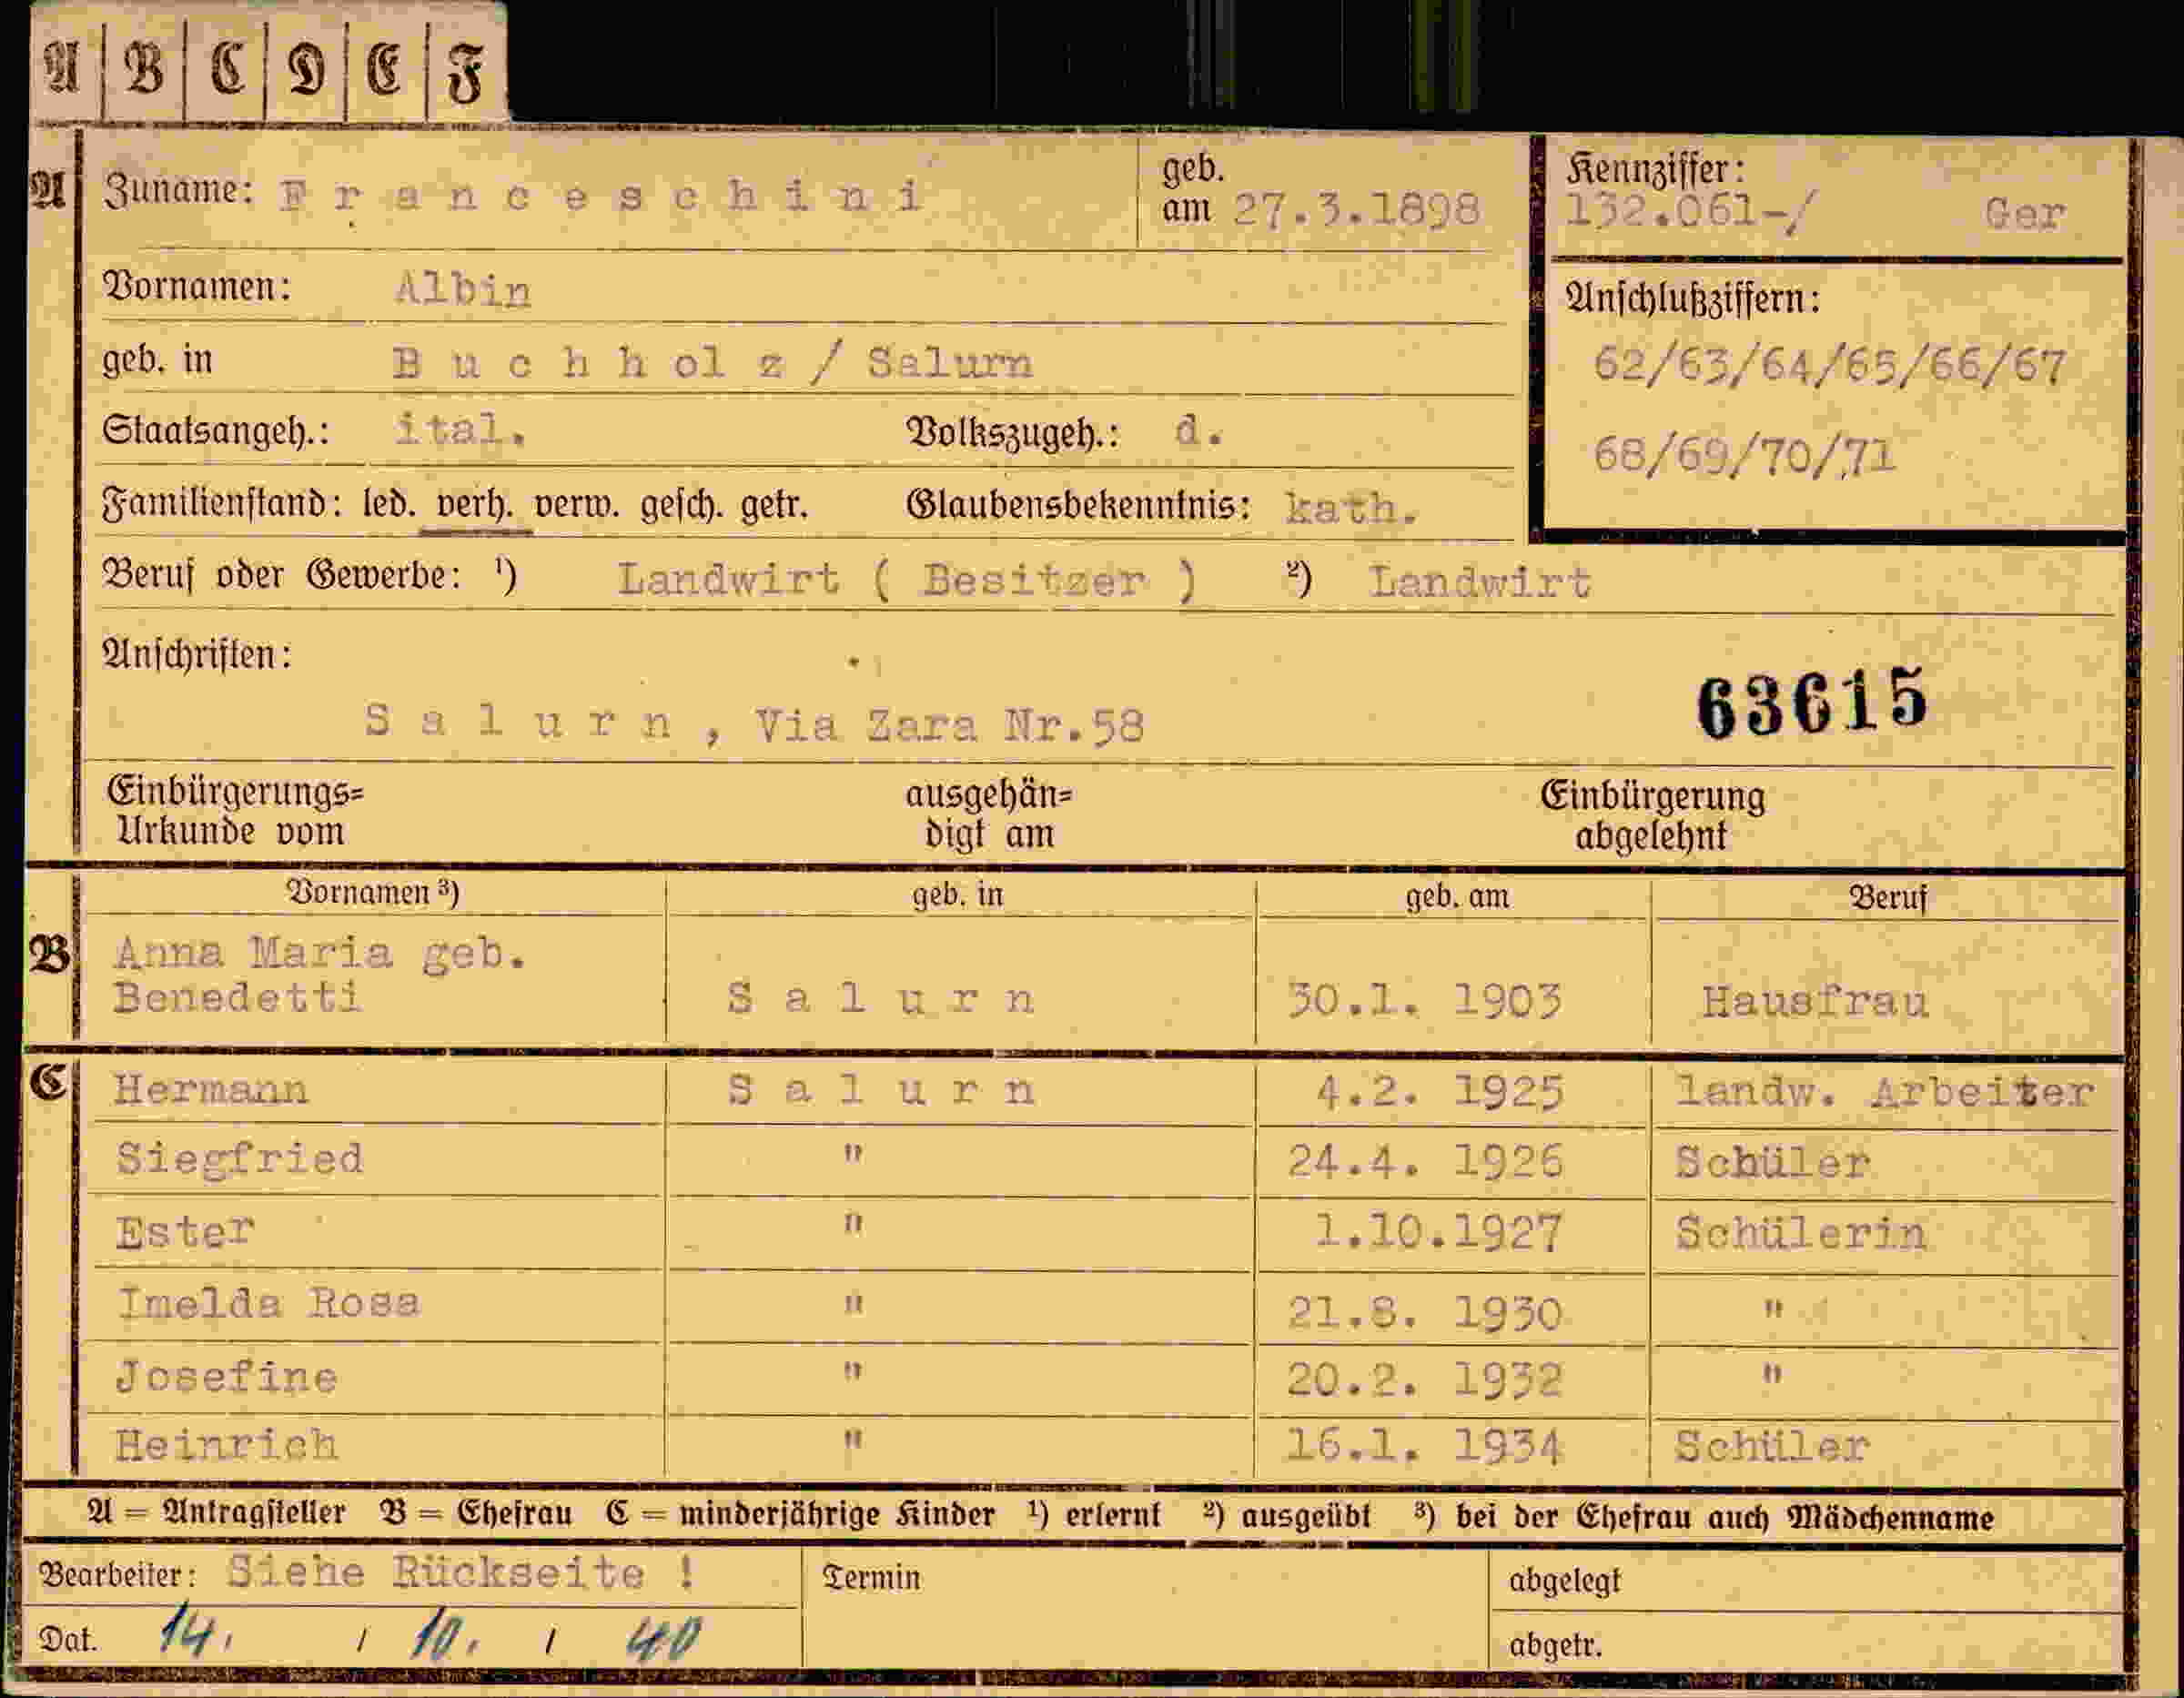 A B C D E F
A Zuname: Franceschini geb. am 27.3.1898 Kennziffer: 132.061-/ Ger
Vornamen: Albin Anschlußziffern:
geb. in Buchholz / Salurn 62/63/64/65/66/67
Staatsangeh.: ital. Volkszugeh.: d. 68/69/70/71
Familienstand: led. verh. verw. gesch. getr. Glaubensbekenntnis: kath.
Beruf oder Gewerbe: ¹) Landwirt ( Besitzer ) ²) Landwirt
Anschriften:
63615
Salurn, Via Zara Nr.58
Einbürgerungs= ausgehän= Einbürgerung
Urkunde vom digt am abgelehnt
Vornamen ³) geb. in geb. am Beruf
B Anna Maria geb.
Benedetti Salurn 30.1. 1903 Hausfrau
C Hermann Salurn 4.2. 1925 landw. Arbeiter
Siegfried " 24.4. 1926 Schüler
Ester " 1.10.1927 Schülerin
Imelda Rosa " 21.8. 1930 "
Josefine " 20.2. 1932 "
Heinrich " 16.1. 1934 Schüler
A = Antragsteller B = Ehefrau C = minderjährige Kinder ¹) erlernt ²) ausgeübt ³) bei der Ehefrau auch Mädchenname
Bearbeiter: Siehe Rückseite ! Termin abgelegt
Dat. 14. / 10. / 40 abgetr.